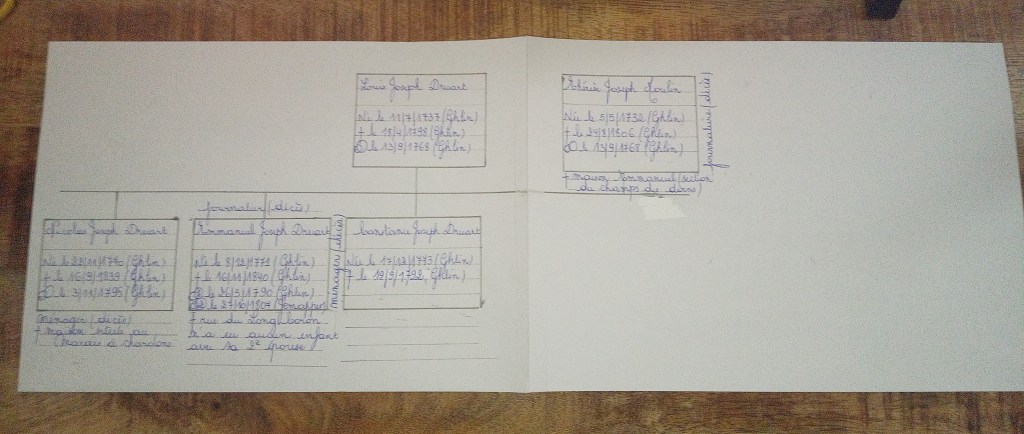 Louis Joseph Druart
Née le 11/7/1737 (Ghlin)
+ le 18/4/1798 (Ghlin)
O le 13/9/1768 (Ghlin)
Joseph Moulin
Née le 5/5/1732 (Ghlin)
+ le 24/8/1806 (Ghlin)
O le 13/9/1768 (Ghlin)
journalier (décès)
+ maison Emmanuel (section
du champs de
Nicolas Joseph Druart
Née le (Ghlin)
+ le 16/9/1839 (Ghlin)
O le 3/11/1795 (Ghlin)
ménager (décès)
+ maison située au
Marais à chardons
journalier (décès)
Emmanuel Joseph Druart
Née le 8/12/1772 (Ghlin)
+ le 16/11/1840 (Ghlin)
le 26/5/1790 (Ghlin)
le 27/10/1807 (Jemappes)
ménager (décès)
+ rue du Long
n'a eu aucun enfant
avec sa 2e épouse
Joseph Druart
Née le 17/12/1773 (Ghlin)
+ le (Ghlin)